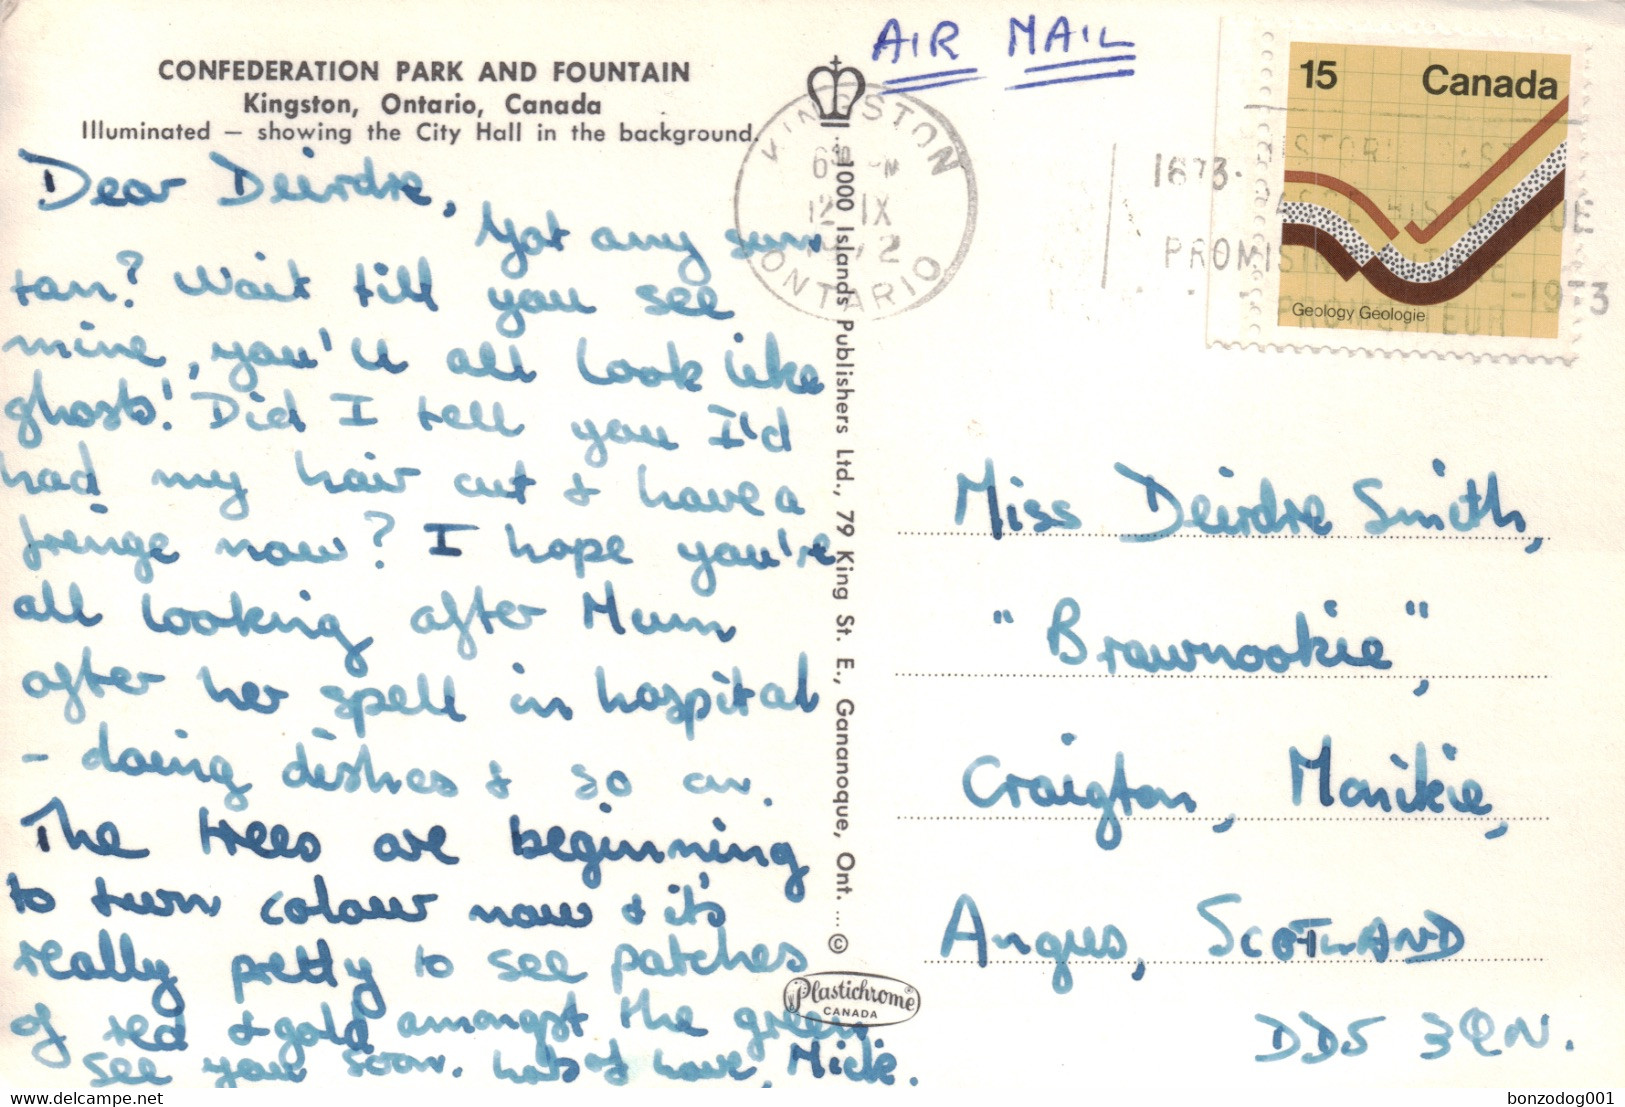 CONFEDERATION PARK AND FOUNTAIN
Kingston, Ontario, Canada
Illuminated – showing the City Hall in the background.
Dear Deirdre,
Got any sun
tan? Wait till you see
mine, you'll all look like
ghosts! Did I tell you I'd
had my hair cut & have a
fringe now? I hope you're
all looking after Mum
after her spell in hospital
- doing dishes & so on.
The trees are beginning
to turn colour now & it's
really pretty to see patches
of red & gold amongst the green
see you soon. Lots of love,
1000 Islands Publishers Ltd., 79 King St. E., Gananoque, Ont. .... ©
Plastichrome®
CANADA
AIR MAIL
KINGSTON
PM
12 IX
ONTARIO
1673-
PROMISING
-1973
15 Canada
Geology Geologie
Miss Deirdre Smith,
"Brawnookie",
Craigton, Monikie,
Angus, SCOTLAND
DD5 3QN.
delcampe.net
bonzodog001